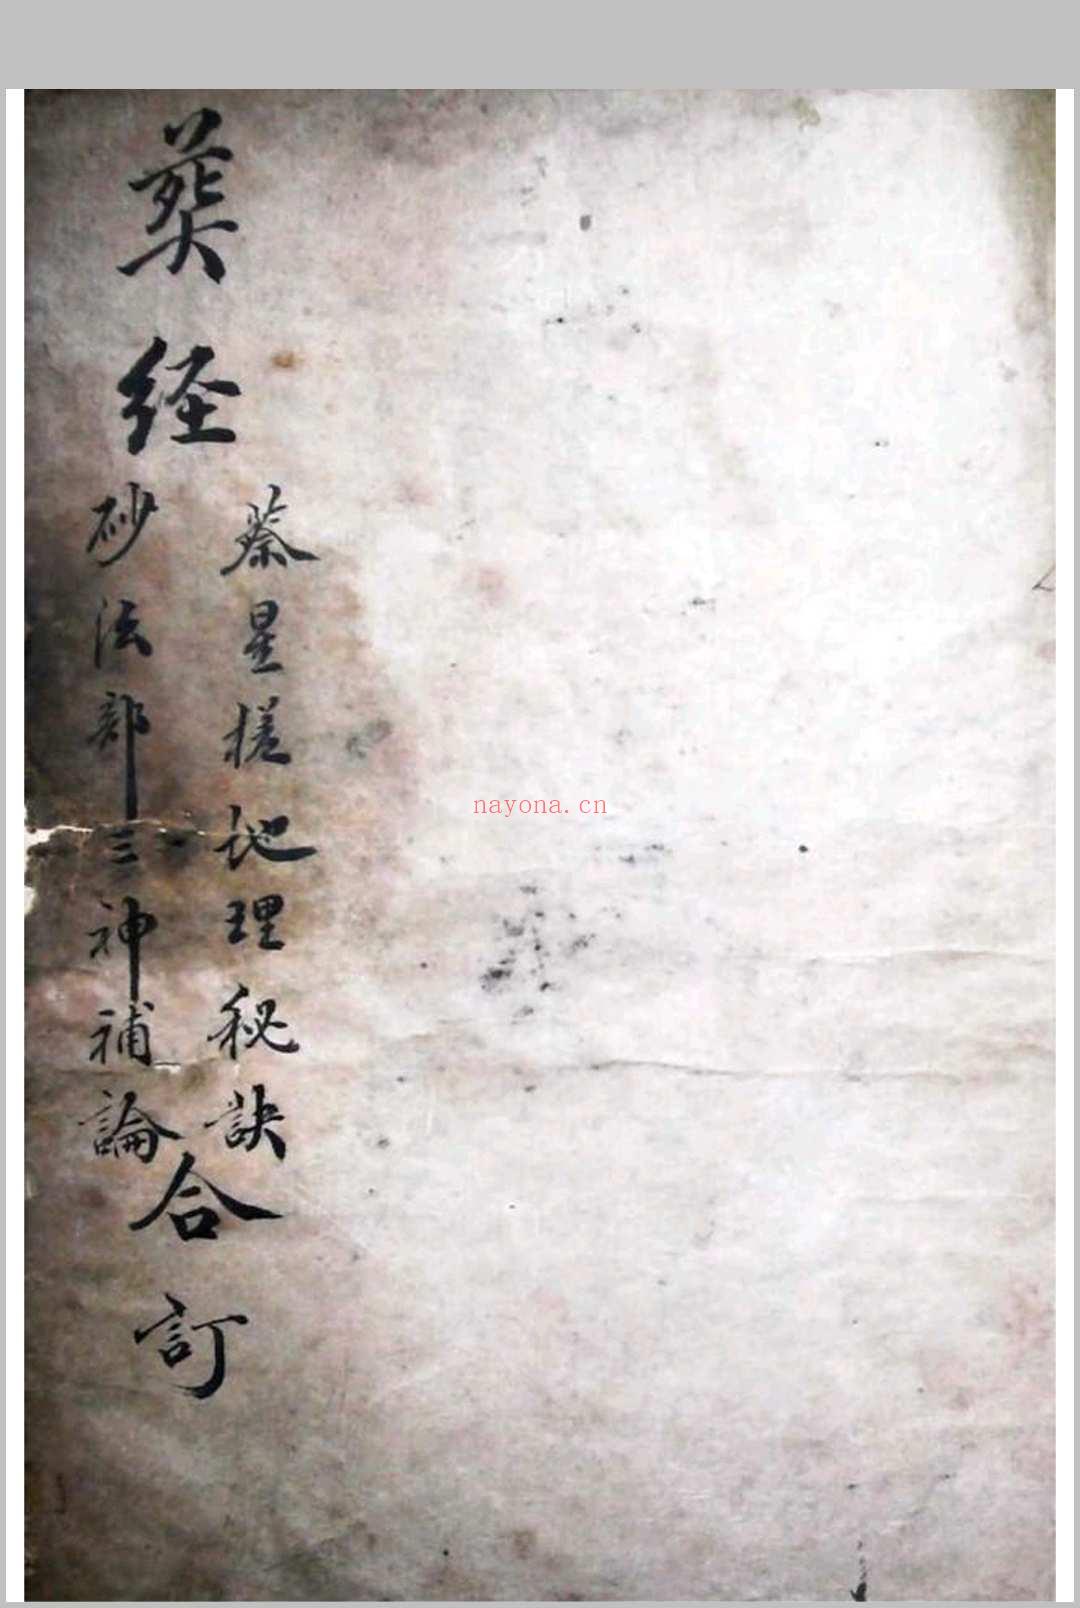 葬经
蔡星槎地理秘訣
砂法部三神補論
合訂
nayona.cn